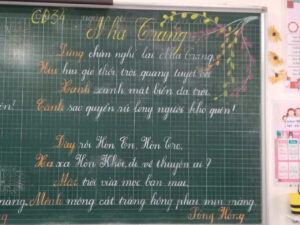 CĐ34
Nha Trang
Dừng chân nghỉ lại Nha Trang
Hiu hiu gió thổi, trời quang tuyệt vời
Xanh xanh mặt biển da trời
Cảnh sao quyến rũ lòng người khó quên!
Đây rồi Hòn
Xa xa Hòn Khói, đi về thuyền ai?
Mặt trời vừa mọc ban mai,
Mênh mông cát trắng hồng phai mịn màng.
Tông Hồng